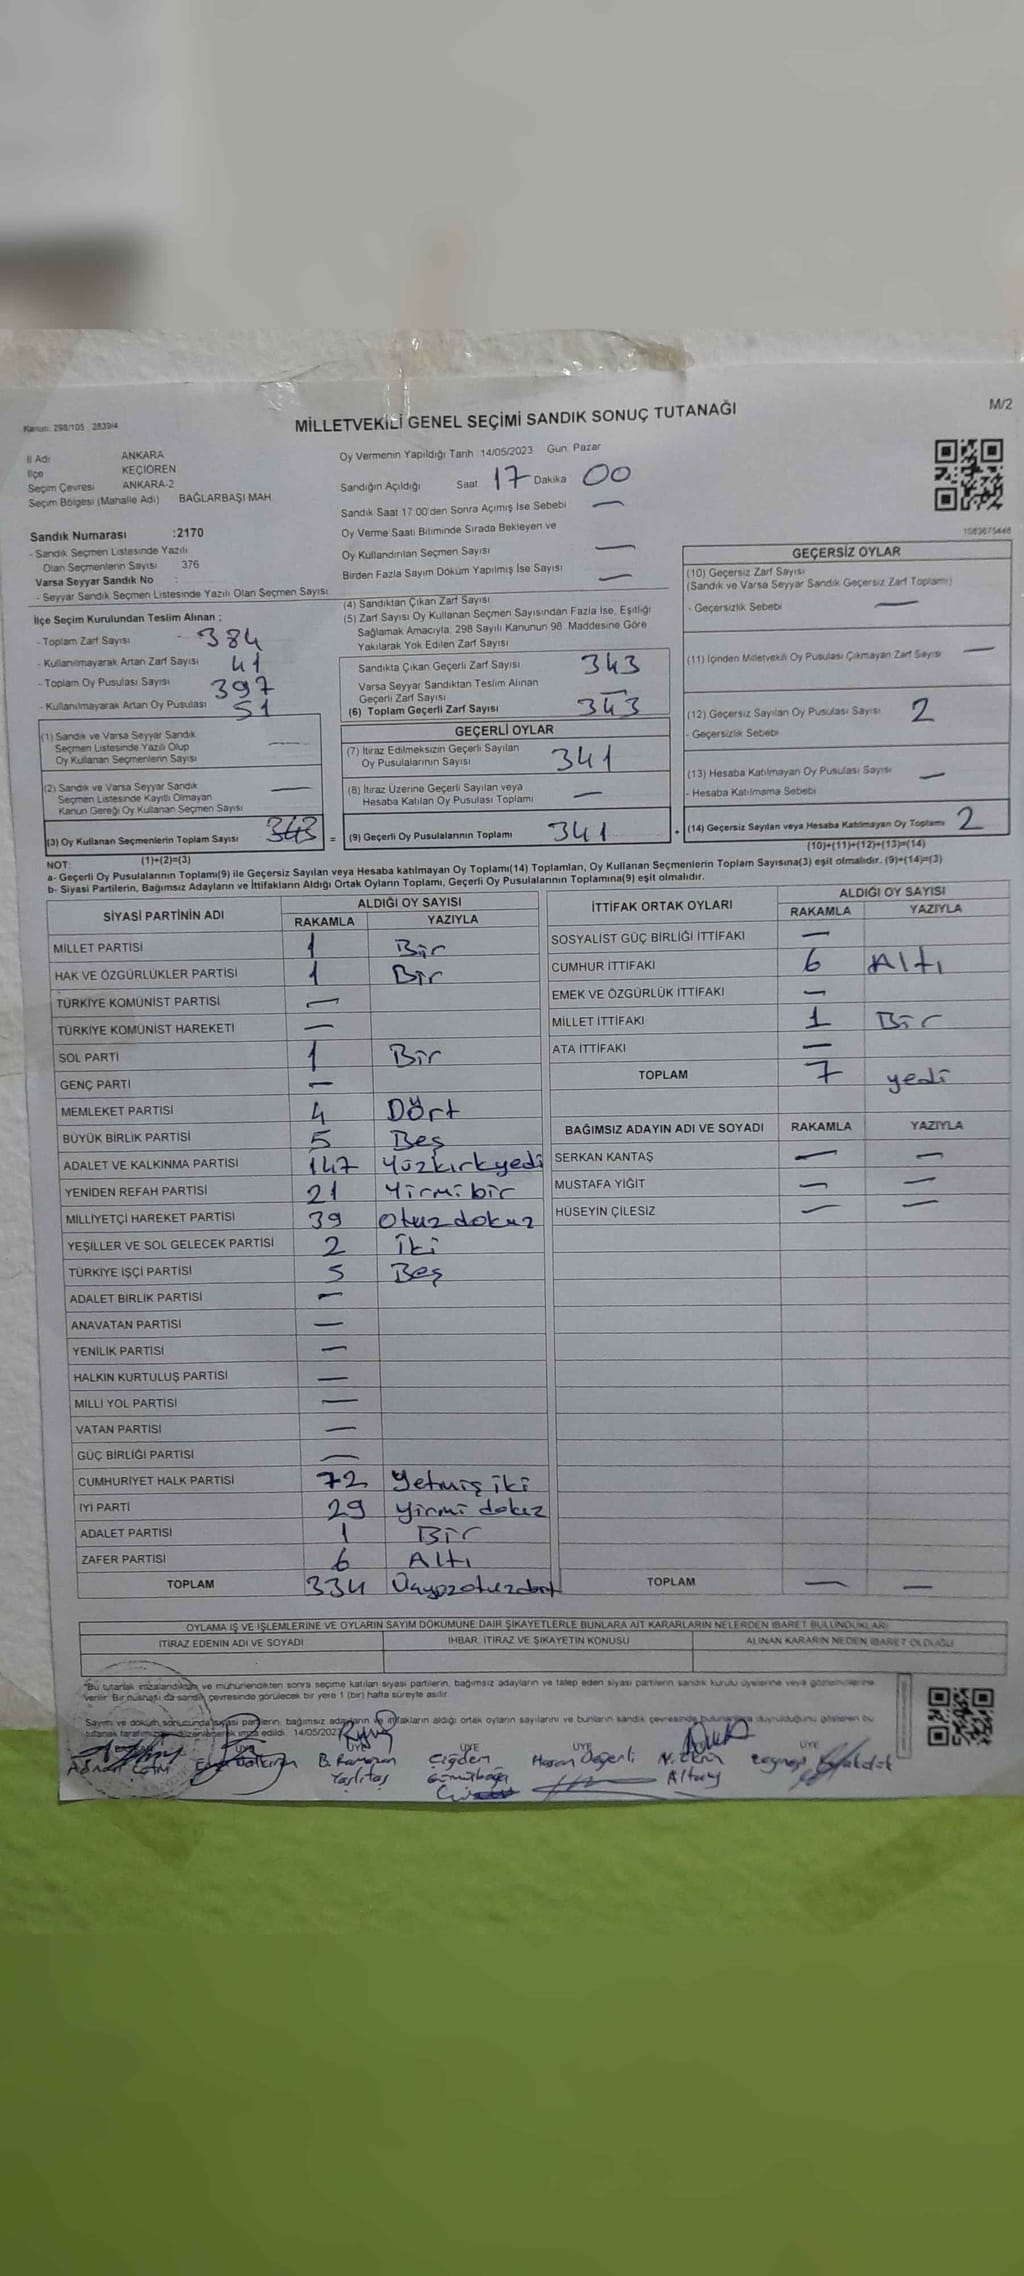 Kanun: 298/105 2839/4
MİLLETVEKİLİ GENEL SEÇİMİ SANDIK SONUÇ TUTANAĞI
M/2
İl Adı ANKARA
İlçe KEÇİÖREN
Seçim Çevresi ANKARA-2
Seçim Bölgesi (Mahalle Adı) BAĞLARBAŞI MAH.
Sandık Numarası :2170
- Sandık Seçmen Listesinde Yazılı
Olan Seçmenlerin Sayısı 376
Varsa Seyyar Sandık No :
- Seyyar Sandık Seçmen Listesinde Yazılı Olan Seçmen Sayısı
Oy Vermenin Yapıldığı Tarih 14/05/2023 Gün: Pazar
Sandığın Açıldığı Saat 17 Dakika 00
Sandık Saat 17:00'den Sonra Açımış İse Sebebi —
Oy Verme Saati Bitiminde Sırada Bekleyen ve
Oy Kullandırılan Seçmen Sayısı —
Birden Fazla Sayım Döküm Yapılmış İse Sayısı —
1583675448
İlçe Seçim Kurulundan Teslim Alınan ;
- Toplam Zarf Sayısı 384
- Kullanılmayarak Artan Zarf Sayısı 41
- Toplam Oy Pusulası Sayısı 397
- Kullanılmayarak Artan Oy Pusulası 51
(1) Sandık ve Varsa Seyyar Sandık
Seçmen Listesinde Yazılı Olup
Oy Kullanan Seçmenlerin Sayısı —
(2) Sandık ve Varsa Seyyar Sandık
Seçmen Listesinde Kayıtlı Olmayan
Kanun Gereği Oy Kullanan Seçmen Sayısı —
(3) Oy Kullanan Seçmenlerin Toplam Sayısı 343 =
(4) Sandıktan Çıkan Zarf Sayısı
(5) Zarf Sayısı Oy Kullanan Seçmen Sayısından Fazla İse, Eşitliği
Sağlamak Amacıyla, 298 Sayılı Kanunun 98. Maddesine Göre
Yakılarak Yok Edilen Zarf Sayısı
Sandıkta Çıkan Geçerli Zarf Sayısı 343
Varsa Seyyar Sandıktan Teslim Alınan
Geçerli Zarf Sayısı —
(6) Toplam Geçerli Zarf Sayısı 343
GEÇERLİ OYLAR
(7) İtiraz Edilmeksizin Geçerli Sayılan
Oy Pusulalarının Sayısı 341
(8) İtiraz Üzerine Geçerli Sayılan veya
Hesaba Katılan Oy Pusulası Toplamı —
(9) Geçerli Oy Pusulalarının Toplamı 341 +
GEÇERSİZ OYLAR
(10) Geçersiz Zarf Sayısı
(Sandık ve Varsa Seyyar Sandık Geçersiz Zarf Toplamı)
- Geçersizlik Sebebi —
(11) İçinden Milletvekili Oy Pusulası Çıkmayan Zarf Sayısı —
(12) Geçersiz Sayılan Oy Pusulası Sayısı 2
- Geçersizlik Sebebi
(13) Hesaba Katılmayan Oy Pusulası Sayısı —
- Hesaba Katılmama Sebebi
(14) Geçersiz Sayılan veya Hesaba Katılmayan Oy Toplamı 2
(10)+(11)+(12)+(13)=(14)
NOT: (1)+(2)=(3)
a- Geçerli Oy Pusulalarının Toplamı(9) ile Geçersiz Sayılan veya Hesaba katılmayan Oy Toplamı(14) Toplamları, Oy Kullanan Seçmenlerin Toplam Sayısına(3) eşit olmalıdır. (9)+(14)=(3)
b- Siyasi Partilerin, Bağımsız Adayların ve İttifakların Aldığı Ortak Oyların Toplamı, Geçerli Oy Pusulalarının Toplamına(9) eşit olmalıdır.
SİYASİ PARTİNİN ADI ALDIĞI OY SAYISI
RAKAMLA YAZIYLA
MİLLET PARTİSİ 1 Bir
HAK VE ÖZGÜRLÜKLER PARTİSİ 1 Bir
TÜRKİYE KOMÜNİST PARTİSİ —
TÜRKİYE KOMÜNİST HAREKETİ —
SOL PARTİ 1 Bir
GENÇ PARTİ —
MEMLEKET PARTİSİ 4 Dört
BÜYÜK BİRLİK PARTİSİ 5 Beş
ADALET VE KALKINMA PARTİSİ 147 Yüzkırkyedi
YENİDEN REFAH PARTİSİ 21 Yirmibir
MİLLİYETÇİ HAREKET PARTİSİ 39 Otuzdokuz
YEŞİLLER VE SOL GELECEK PARTİSİ 2 İki
TÜRKİYE İŞÇİ PARTİSİ 5 Beş
ADALET BİRLİK PARTİSİ —
ANAVATAN PARTİSİ —
YENİLİK PARTİSİ —
HALKIN KURTULUŞ PARTİSİ —
MİLLİ YOL PARTİSİ —
VATAN PARTİSİ —
GÜÇ BİRLİĞİ PARTİSİ —
CUMHURİYET HALK PARTİSİ 72 Yetmiş iki
İYİ PARTİ 29 Yirmi dokuz
ADALET PARTİSİ 1 Bir
ZAFER PARTİSİ 6 Altı
TOPLAM 334 Üçyüzotuzdört
İTTİFAK ORTAK OYLARI ALDIĞI OY SAYISI
RAKAMLA YAZIYLA
SOSYALİST GÜÇ BİRLİĞİ İTTİFAKI —
CUMHUR İTTİFAKI 6 Altı
EMEK VE ÖZGÜRLÜK İTTİFAKI —
MİLLET İTTİFAKI 1 Bir
ATA İTTİFAKI —
TOPLAM 7 yedi
BAĞIMSIZ ADAYIN ADI VE SOYADI RAKAMLA YAZIYLA
SERKAN KANTAŞ — —
MUSTAFA YİĞİT — —
HÜSEYİN ÇİLESİZ — —
TOPLAM — —
OYLAMA İŞ VE İŞLEMLERİNE VE OYLARIN SAYIM DÖKÜMÜNE DAİR ŞİKAYETLERLE BUNLARA AİT KARARLARIN NELERDEN İBARET BULUNDUKLARI
İTİRAZ EDENİN ADI VE SOYADI İHBAR, İTİRAZ VE ŞİKAYETİN KONUSU ALINAN KARARIN NEDEN İBARET OLDUĞU
*Bu tutanak imzalandıktan ve mühürlendikten sonra seçime katılan siyasi partilerin, bağımsız adayların ve talep eden siyasi partilerin sandık kurulu üyelerine veya gözlemcilerine
verilir. Bir nüshası da sandık çevresinde görülecek bir yere 1 (bir) hafta süreyle asılır.
Sayım ve döküm sonucunda siyasi partilerin, bağımsız adayların ve ittifakların aldığı ortak oyların sayılarını ve bunların sandık çevresinde bulunanlara duyrulduğunu gösteren bu
tutanak tarafımızdan düzenlenerek imza edildi. 14/05/2023
ÜYE ÜYE ÜYE ÜYE
B. Ramazan Çiğdem Hasan Değerli
Altıray